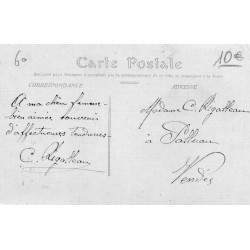 60
10€
Carte Postale
CORRESPONDANCE
ADRESSE
A ma chère femme
bien aimée souvenir
d'affectueuses tendresses
C. Rigatteau
Madame C. Rigatteau
à
Vendée